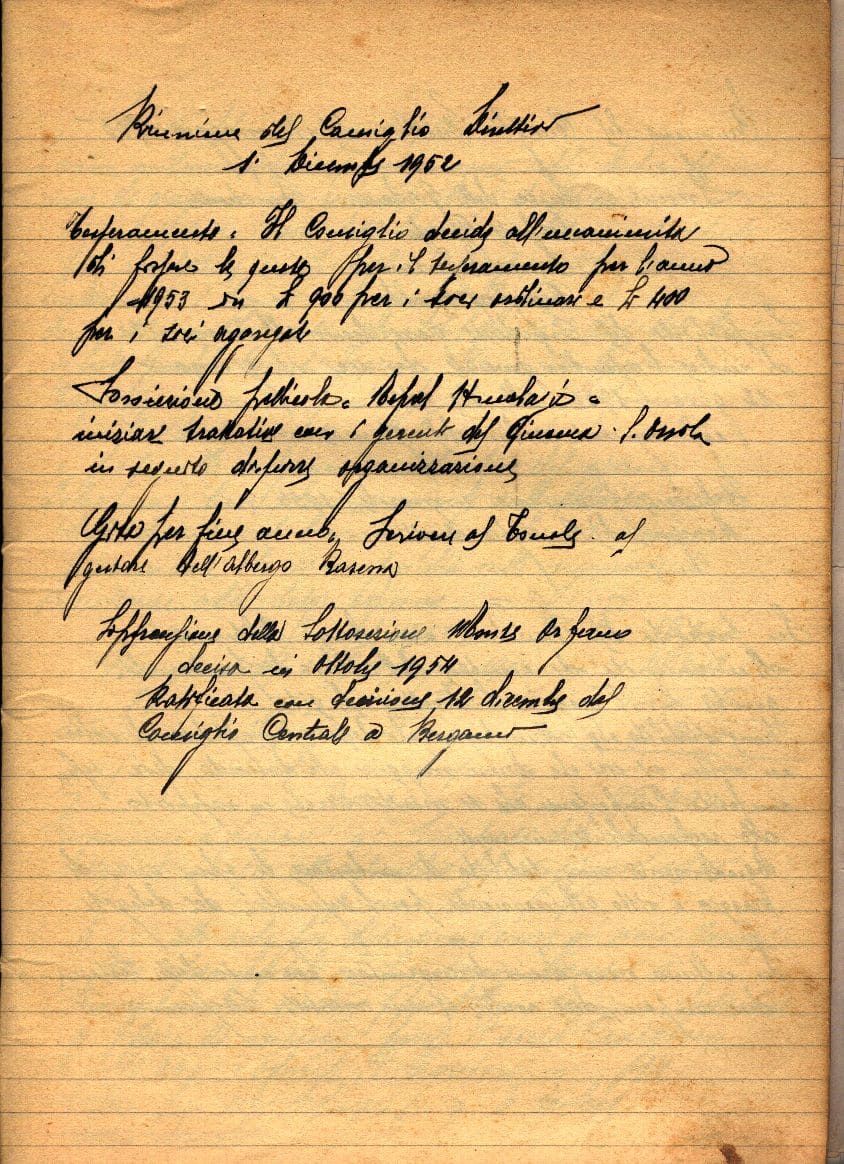 Riunione del Consiglio Direttivo
1° Dicembre 1952
Tesseramento. Il Consiglio decide all'unanimità
di fissare le quote per il tesseramento per l'anno
1953 in L 900 per i soci ordinari e L 400
per i soci aggregati
pellicola
iniziare trattative con i gerenti del Cinema
in seguito organizzazione
Gita per fine anno. Scrivere al Tonale al
gestore dell'albergo
Soppressione della Sottosezione Monte Orfano
decisa in ottobre 1954
Ratificata con decisione 12 dicembre del
Consiglio Centrale a Bergamo